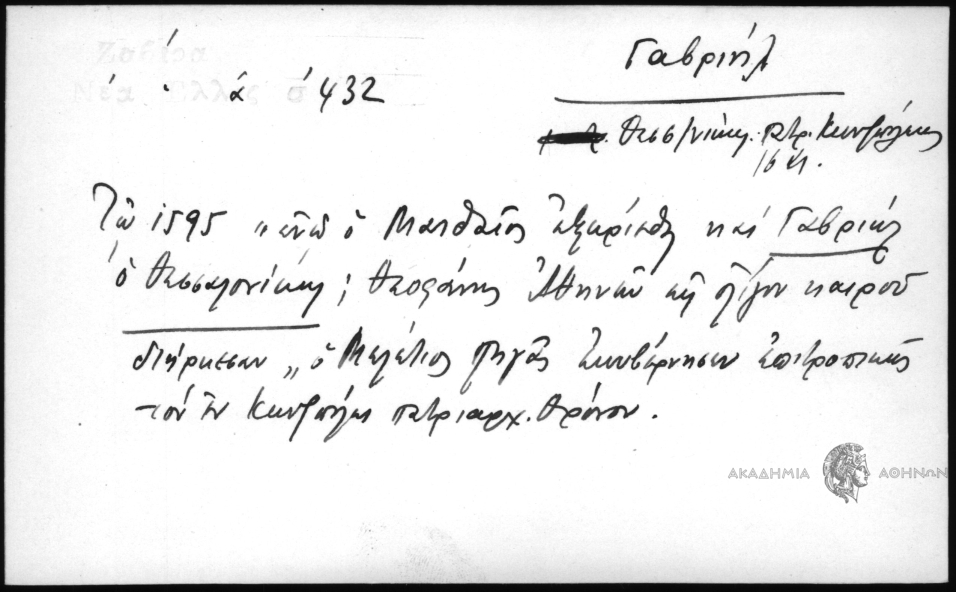 Ζαβίρα
Νέα Ἑλλάς σ 432
Γαβριήλ
Θεσσ/νίκης. πατρ. Κων/πόλεως
16 αι.
Τῷ 1595 "ἀφοῦ ὁ Ματθαῖος ἐξωρίσθη καὶ Γαβριήλ
ὁ Θεσσαλονίκης; Θεοφάνης Ἀθηνῶν ἐπ' ὀλίγον καιρόν
διήρκεσαν" ὁ Μελέτιος Πηγᾶς ἐκυβέρνησεν ἐπιτροπικῶς
τὸν τῆς Κων/πόλεως πατριαρχ. θρόνον.
ΑΚΑΔΗΜΙΑ ΑΘΗΝΩΝ